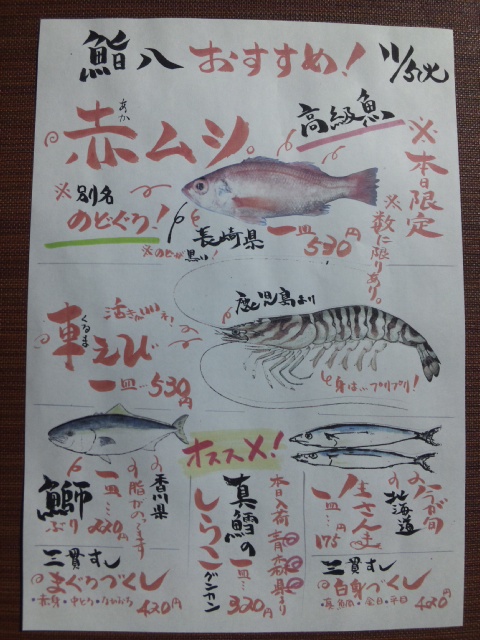 鮨八 おすすめ! 11/5火
赤ムシ。
あか
高級魚
※本日限定
※数に限りあり。
※別名
のどぐろ!
※のどが黒い!
長崎県
一皿 530円
活きがいい!
鹿児島より
車えび
くるま
一皿…530円
身は…プリプリ!
オススメ!
香川県
脂がのってます
鰤
ぶり
一皿… 220円
本日入荷 青森県より
真鱈の
しらこ
グンカン
一皿… 320円
今が旬
北海道
生さんま
一皿…175円
三貫すし
まぐろづくし
・赤身・中とろ・ねぎとろ
420円
三貫すし
白身づくし
・真鯛・金目・平目
420円